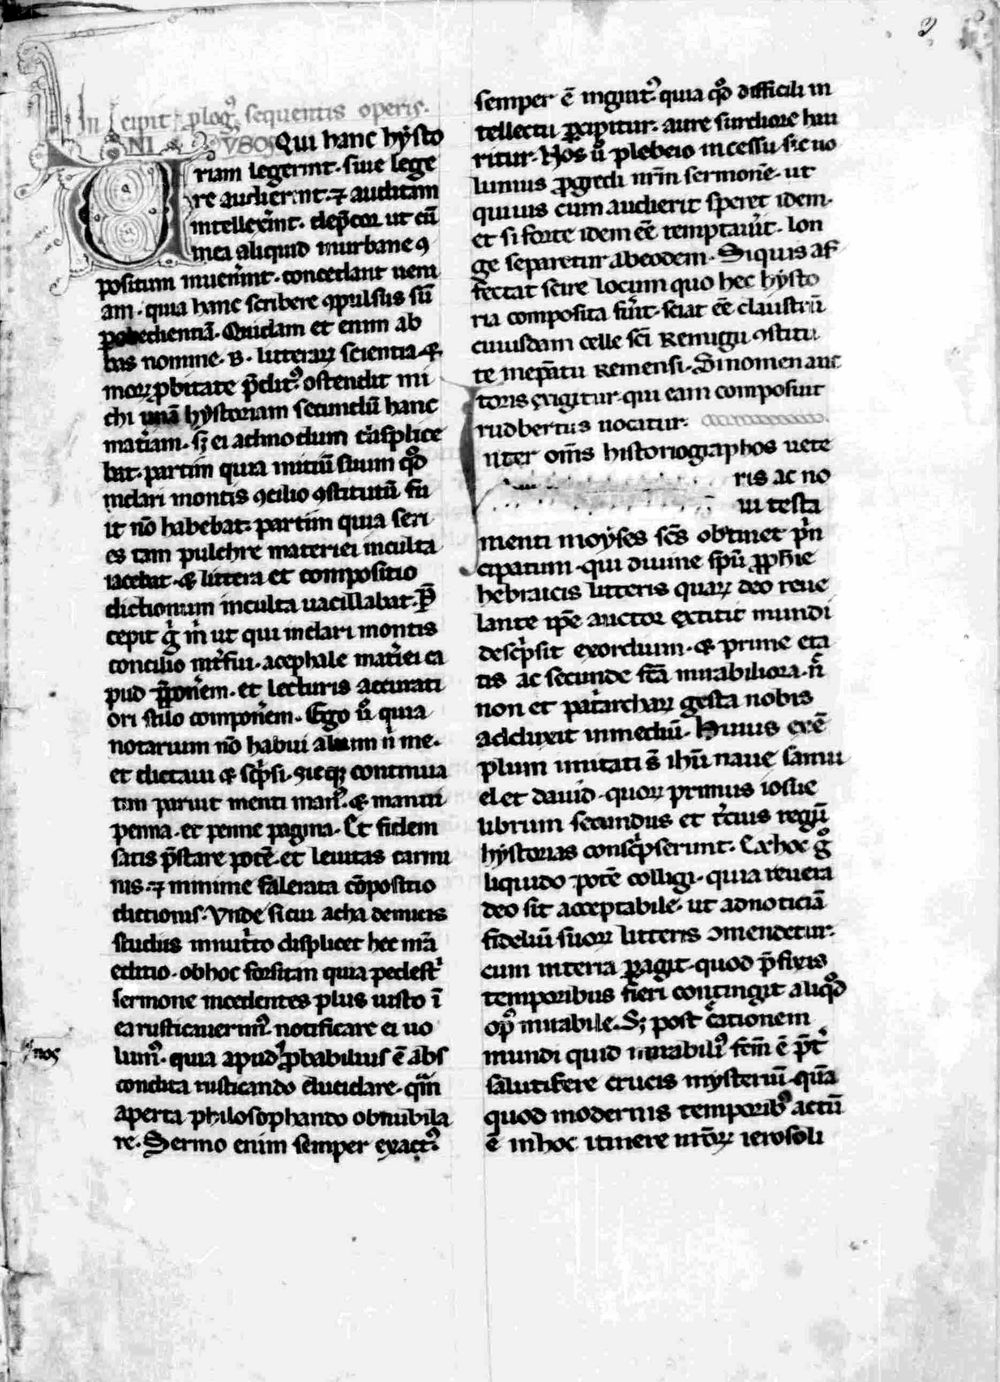 2
In cipit plogꝰ sequentis operis.
VNIVERSOS Qui hanc hẏsto
riam legerint. siue lege
re audierint. ⁊ auditam
intellexīnt. dep̄cor ut cū
mea aliquid inurbane ꝯ
positum inuenīnt. concedant ueni
am. quia hanc scribere ꝯpulsus sū
ꝑ obedientiā. Quidam et enim ab
bas nomine .B. litterarꝝ scientia ⁊
morꝝ ꝓbitate p̄ditꝰ ostendit mi
chi unā hẏstoriam secundū hanc
matīam. sꝫ ei admodum displice
bat. partim quia initiū suum qd̄
inclari montis ꝯcilio ꝯstitutū fu
it nō habebat. partim quia seri
es tam pulchre materiei inculta
iacebat. ⁊ littera et compositio
dictionum inculta uacillabat. P̄
cepit g̊ m̊ ut qui inclari montis
concilio int̄fui. acephale mat̄iei ca
pud p̄ponēm. et lecturis accurati
ori stilo componēm. Ego ū quia
notarium nō habui alium n̊ me.
et dictaui ⁊ sc̄psi. sicqꝫ continua
tim paruit menti manꝰ. ⁊ manui
penna. et penne pagina. Et fidem
satis p̄stare potē. et leuitas carmi
nis. ⁊ minime falerata cōpositio
dictionis. Vnde sicui acha demicis
studiis innut̄to displicet hec n̄ra
editio. ob hoc forsitan quia pedest̄
sermone incedentes plus iusto ī
ea rusticauerimꝰ. notificare ei uo
lumꝰ. quia apud nos ꝓbabiliuſ ē abſ
condita rusticando elucidare. qm̄
aperta philosophando obnubila
re. Sermo enim semper exactꝰ
semper ē ingratꝰ. quia qd̄ difficili in
tellectu ꝑcipitur. aure surdiore hau
ritur. Nos ū plebeio incessu sic uo
lumus ꝓgredi nr̄m sermonē. ut
quiuis cum audierit speret idem.
et si forte idem eē temptauit. lon
ge separetur ab eodem. Siquis af
fectat scire locum quo hec hẏsto
ria composita fūit. sciat eē claustrū
cuiusdam celle sc̄i Remigii ꝯstitu
te in ep̄atu Remensi. Si nomen auc
toris exigitur. qui eam composuit
rudbertus uocatur.
Inter om̄s historiographos uete
ris ac no
ui testa
menti moẏses sc̄s obtinet p̄n
cipatum. qui diuine sp̄u ꝓph̄ie
hebraicis litteris quarꝝ deo reue
lante ip̄e auctor extitit mundi
desc̄psit exordium. ⁊ prime eta
tis ac secunde fc̄a mirabiliora. n̄
non et pat̄archarꝝ gesta nobis
adduxit in mediū. Huius exē
plum imitati s̄ ih̄u naue samu
el et dauid. quorꝝ primus iosue
librum secundus et t̄cius regū
hẏstorias consc̄pserunt. Ex hoc g̊
liquido potē colligi. quia reuera
deo sit acceptabile. ut ad noticiā
fideliū suorꝝ litteris ꝯmendetur.
cum in terra ꝑagit. quod p̄fixis
temporibus fieri contingit aliqd̄
opꝰ mirabile. Sꝫ post c̄ationem
mundi quid mirabiliꝰ fc̄m ē p̄t̄
salutifere crucis mẏsteriū. quā
quod modernis temporibꝰ actū
ē in hoc itinere nr̄orꝝ ierosoli